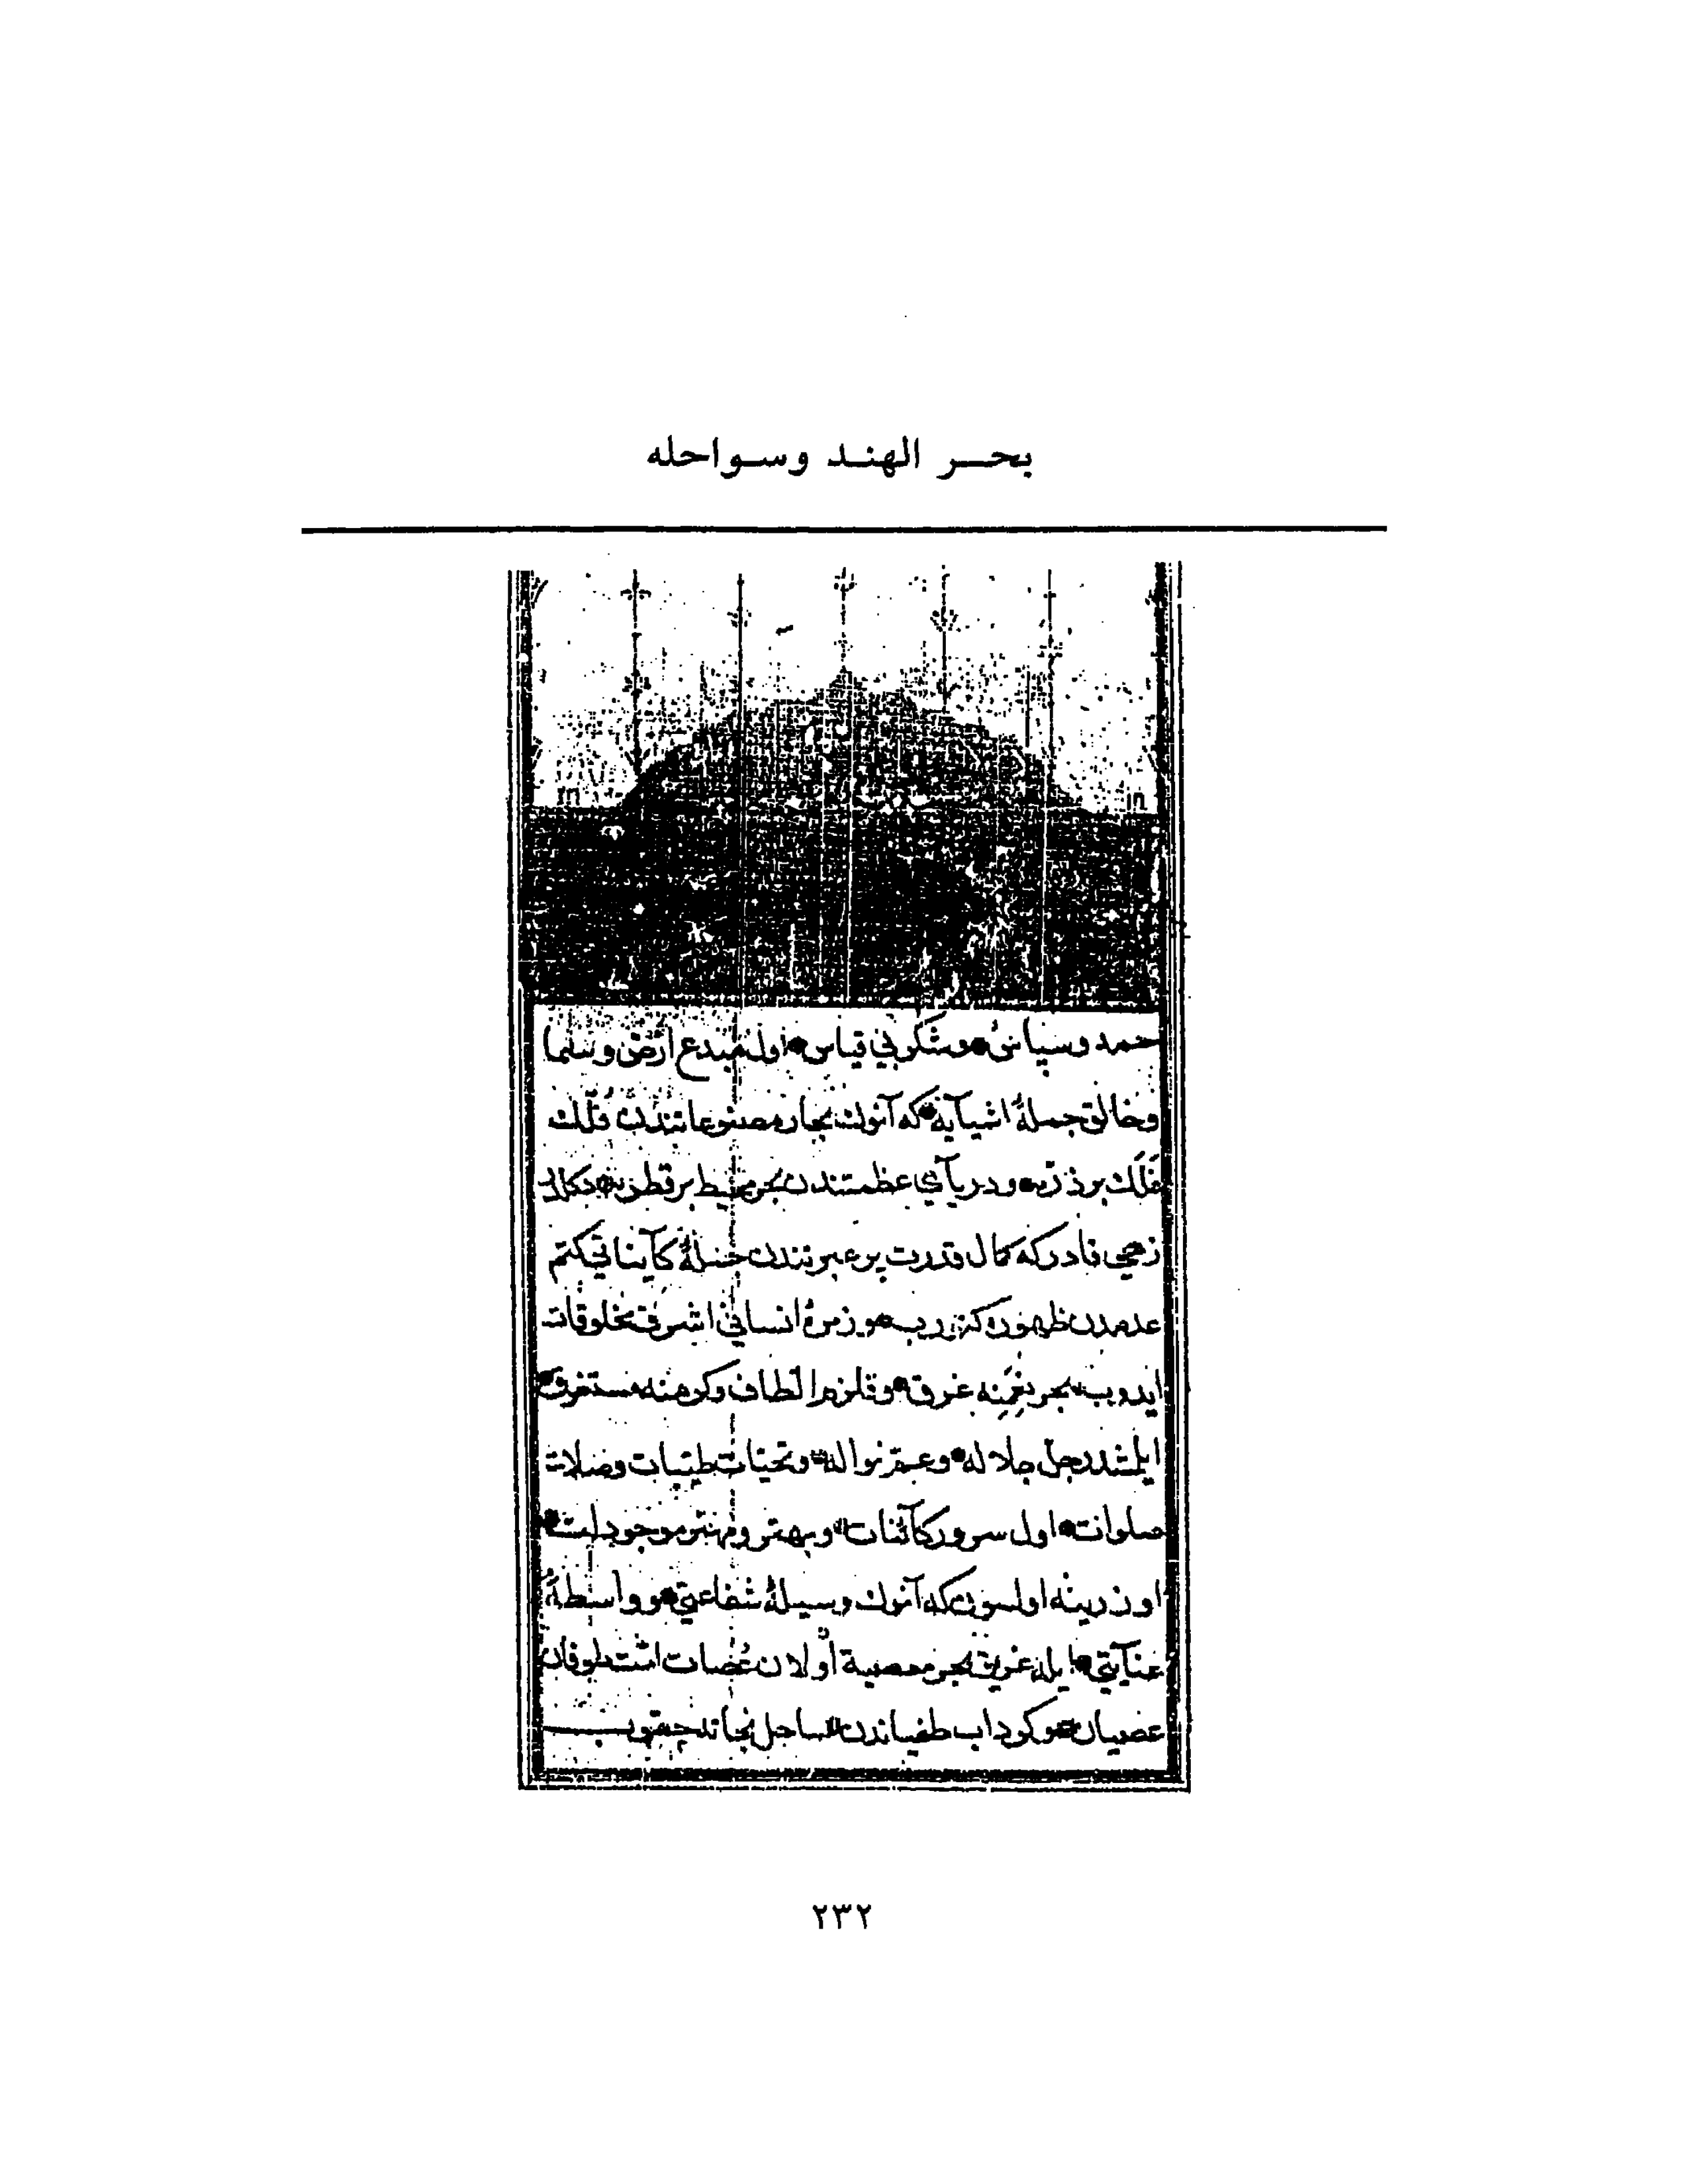 بحر الهند وسواحله
حمد وسپاس وشكر بي قياس اول مبدع ارض وسما
وخالق جملۀ اشيآيه كه آنوك بحار مصنوعاتندن فلك
فلك بر ذره ودرياي عظمتندن بحر محيط بر قطره دكلدر
زهي قادر كه كمال قدرت بر عبرتندن جملۀ كآيناتي كتم
عدمدن ظهوره كتورب وزمرۀ انساني اشرف مخلوقات
ايدوب بحر نعمنه غرق وقلزم الطاف وكرمنه مستغرق
ايلمشدر جل جلاله وعم نواله وتحيات طيبات وصلات
صلوات اول سرور كآئنات وبهتر ومهتر موجودات
اوزرينه اولسون كه آنوك وسيلۀ شفاعتي وواسطۀ
عنآيتي ايله غريق بحر معصية اولان عصات امت طوفان
عصيان وكرداب طغياندن ساحل نجاته چقوب
٢٣٢